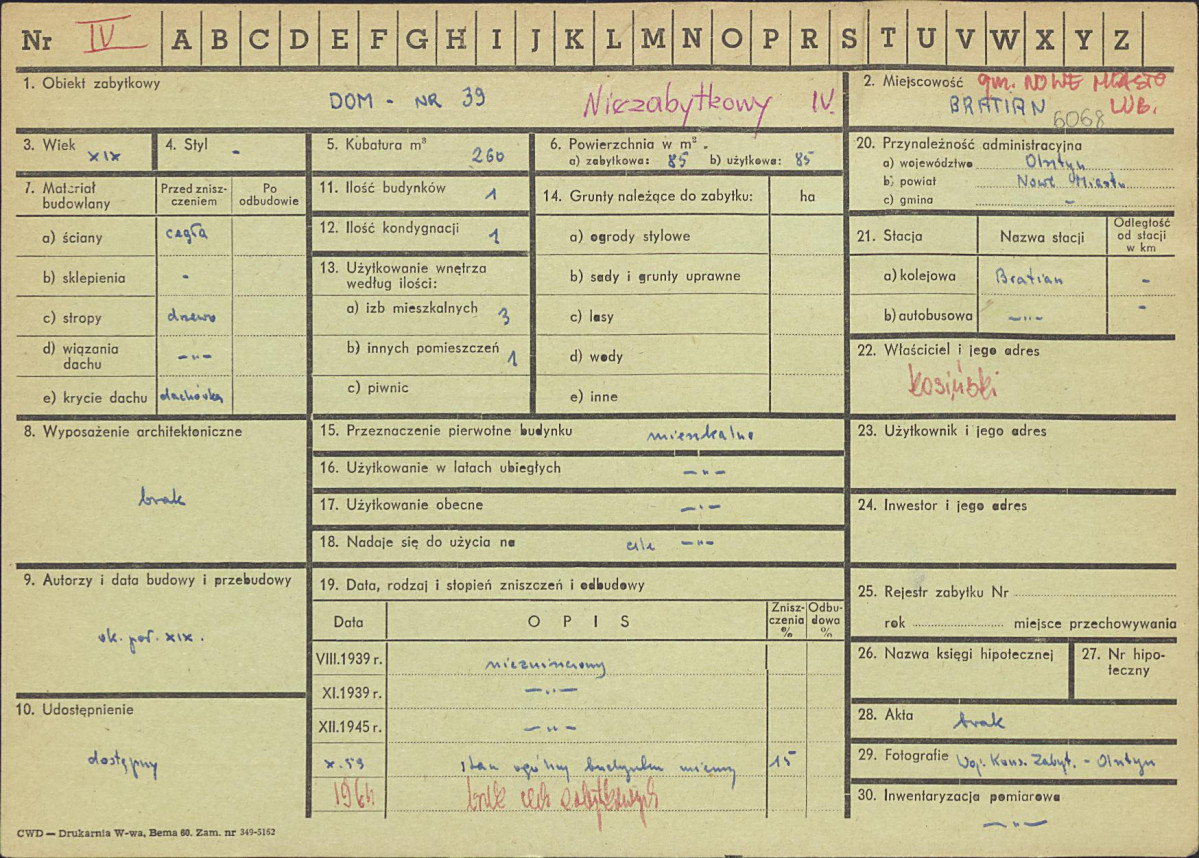 Nr IV A B C D E F G H I J K L M N O P R S T U V W X Y Z
1. Obiekt zabytkowy
DOM - NR 39 Niezabytkowy IV.
2. Miejscowość gm. NOWE MIASTO
BRATIAN LUB.
6068
3. Wiek XIX
4. Styl -
5. Kubatura m³ 260
6. Powierzchnia w m².
a) zabytkowa: 85 b) użytkowa: 85
7. Materiał budowlany
Przed zniszczeniem
Po odbudowie
a) ściany cegła
b) sklepienia -
c) stropy drewo
d) wiązania dachu -"-
e) krycie dachu dachówka
8. Wyposażenie architektoniczne
brak
9. Autorzy i data budowy i przebudowy
ok. poł. XIX.
10. Udostępnienie
dostępny
11. Ilość budynków 1
12. Ilość kondygnacji 1
13. Użytkowanie wnętrza
według ilości:
a) izb mieszkalnych 3
b) innych pomieszczeń 1
c) piwnic
14. Grunty należące do zabytku: ha
a) ogrody stylowe
b) sady i grunty uprawne
c) lasy
d) wody
e) inne
15. Przeznaczenie pierwotne budynku mieszkalne
16. Użytkowanie w latach ubiegłych -"-
17. Użytkowanie obecne -"-
18. Nadaje się do użycia na cele -"-
19. Data, rodzaj i stopień zniszczeń i odbudowy
Data O P I S Zniszczenia % Odbudowa %
VIII.1939 r. niezniszczony
XI.1939 r. -"-
XII.1945 r. -"-
X.59 stan ogólny budynku 15
1964 brak cech zabytkowych
20. Przynależność administracyjna
a) województwo Olsztyn
b) powiat Nowe Miasto
c) gmina -
21. Stacja Nazwa stacji Odległość od stacji w km
a) kolejowa Bratian -
b) autobusowa -"- -
22. Właściciel i jego adres
Kosiński
23. Użytkownik i jego adres
24. Inwestor i jego adres
25. Rejestr zabytku Nr
rok miejsce przechowywania
26. Nazwa księgi hipotecznej
27. Nr hipoteczny
28. Akta brak
29. Fotografie Woj. Kons. Zabyt. - Olsztyn
30. Inwentaryzacja pomiarowa
-"-
CWD — Drukarnia W-wa, Bema 60. Zam. nr 349-5162